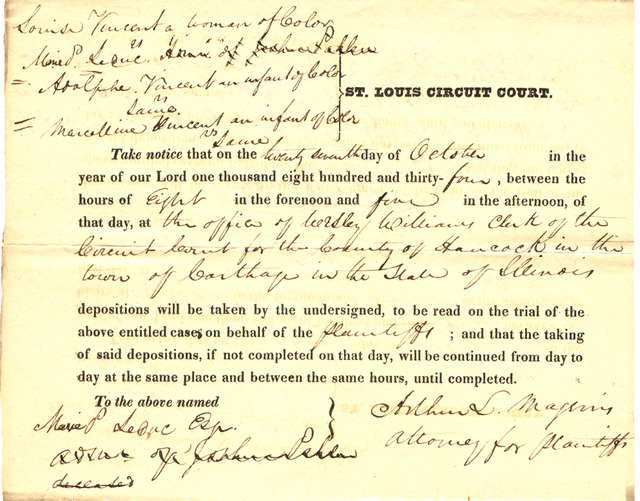 Louise Vincent a woman of Color
vs
Marie P. Leduc Adm. of Joshua Palen
= Adolphe Vincent an infant of Color
vs
Same
= Marcelline Vincent an infant of Color
vs
Same
ST. LOUIS CIRCUIT COURT.
Take notice that on the twenty seventh day of October in the
year of our Lord one thousand eight hundred and thirty-four, between the
hours of Eight in the forenoon and five in the afternoon, of
that day, at the office of Wesley Williams Clerk of the
Circuit Court for the County of Hancock in the
town of Carthage in the State of Illinois
depositions will be taken by the undersigned, to be read on the trial of the
above entitled cases on behalf of the plaintiffs ; and that the taking
of said depositions, if not completed on that day, will be continued from day to
day at the same place and between the same hours, until completed.
To the above named
Marie P. Leduc Esqr.
Joshua Palen
deceased
Arthur L. Magenis
Attorney for plaintiffs